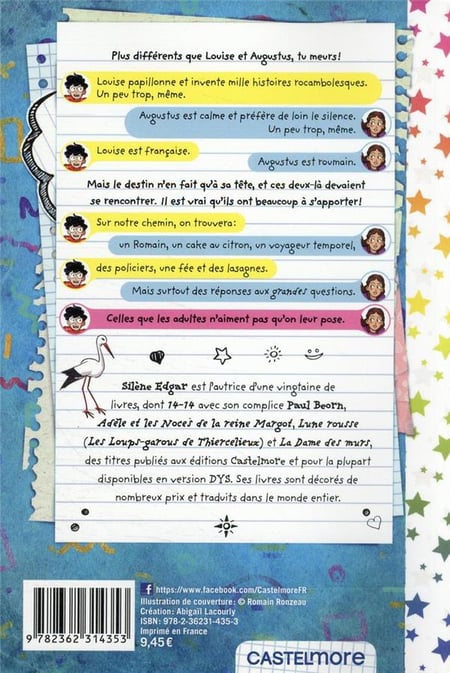 Plus différents que Louise et Augustus, tu meurs !
Louise papillonne et invente mille histoires rocambolesques.
Un peu trop, même.
Augustus est calme et préfère de loin le silence.
Un peu trop, même.
Louise est française.
Augustus est roumain.
Mais le destin n'en fait qu'à sa tête, et ces deux-là devaient
se rencontrer. Il est vrai qu'ils ont beaucoup à s'apporter !
Sur notre chemin, on trouvera :
un Romain, un cake au citron, un voyageur temporel,
des policiers, une fée et des lasagnes.
Mais surtout des réponses aux grandes questions.
Celles que les adultes n'aiment pas qu'on leur pose.
Silène Edgar est l'autrice d'une vingtaine de
livres, dont 14-14 avec son complice Paul Beorn,
Adèle et les Noces de la reine Margot, Lune rousse
(Les Loups-garous de Thiercelieux) et La Dame des murs,
des titres publiés aux éditions Castelmore et pour la plupart
disponibles en version DYS. Ses livres sont décorés de
nombreux prix et traduits dans le monde entier.
https://www.facebook.com/CastelmoreFR
Illustration de couverture : © Romain Ronzeau
Création : Abigaïl Lacourly
ISBN : 978-2-36231-435-3
Imprimé en France
9,45 €
9 782362 314353
CASTELMORE